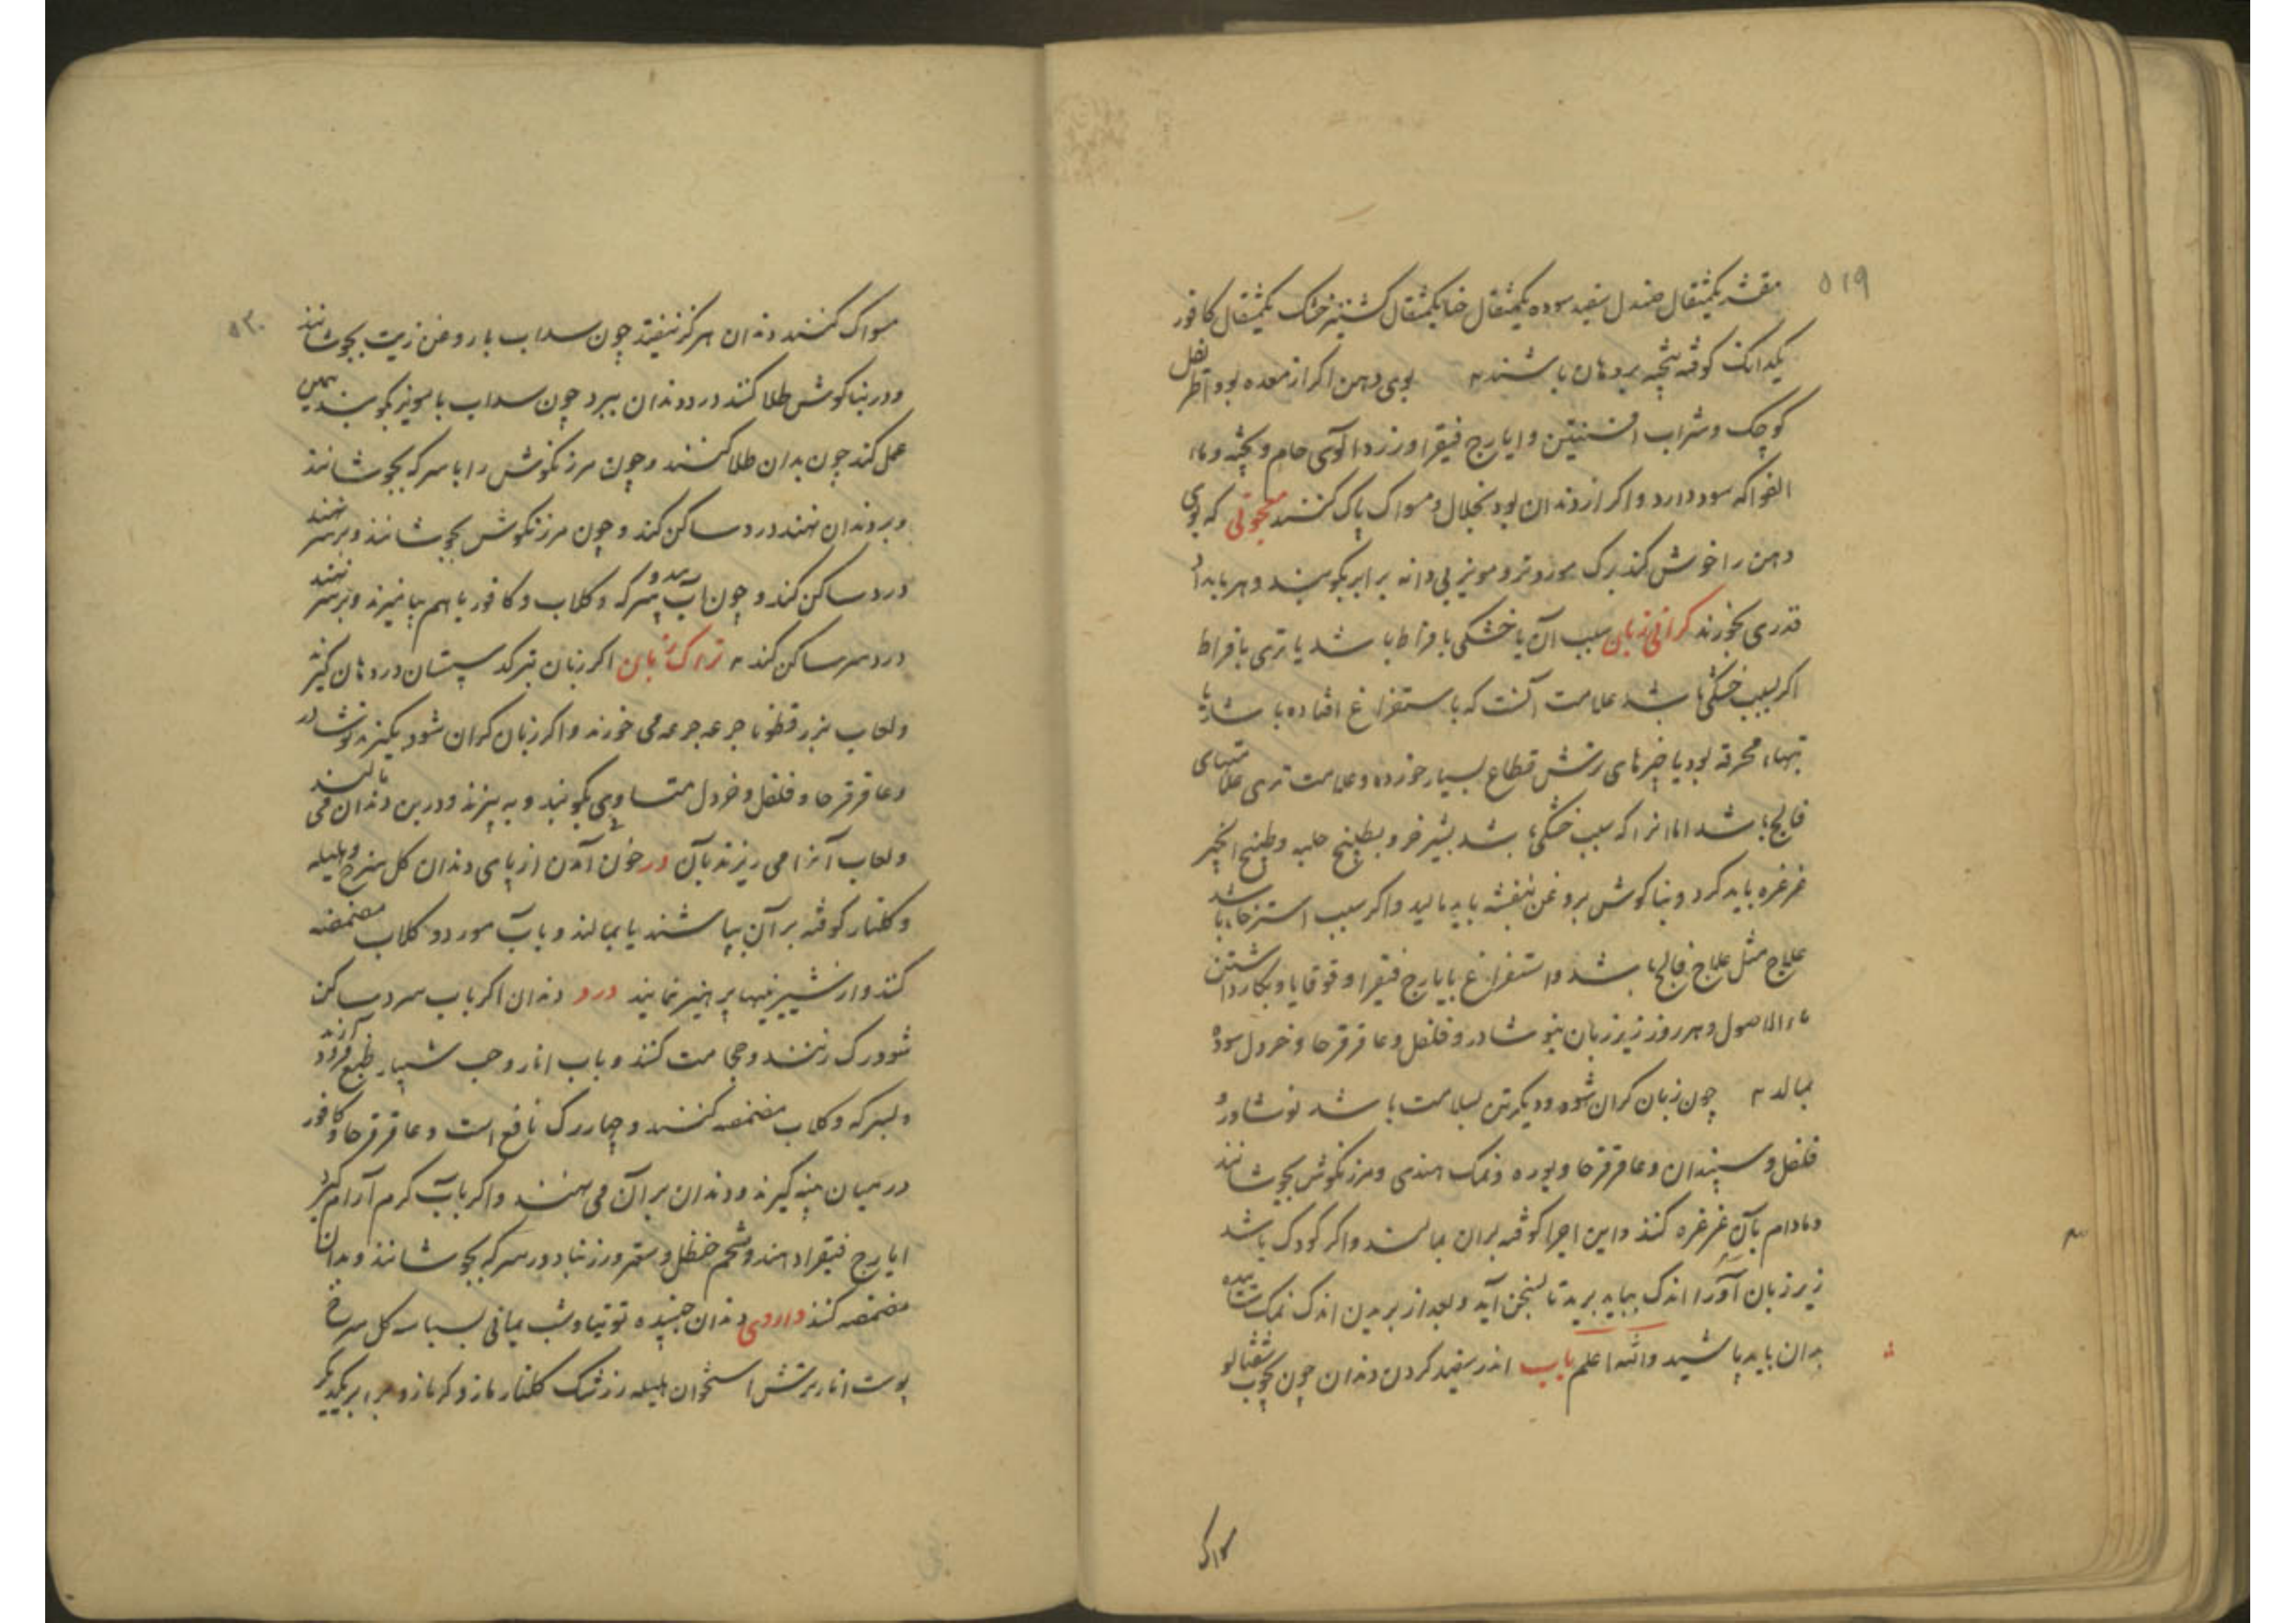 ۵۱۹
مقشر یکمثقال صندل سفید سوده یکمثقال حنا یکمثقال کشنیز خشک یکمثقال کافور
یکدانک کوفته بیخته بر دهان باشند بوی دهن اکر از معده بود اطریفل
کوچک و شراب افسنتین و ایارج فیقرا و زردالوی خام و پخته و ماء
الفواکه سود دارد و اکر از دندان بود بخلال و مسواک پاک کنند که بوی
دهن را خوش کند برک مورد تر و مویز بی دانه برابر بکوبند و هر بامداد
قدری بخورند کرانی زبان سبب آن یا خشکی بافراط باشد یا تری بافراط
اکر بسبب خشکی باشد علامت آنست که باستفراغ افتاده باشد یا
تبهاء محرقه بود یا چیزهای ترش قطاع بسیار خورده و علامت تری علامتهای
فالج باشد اما انرا که سبب خشکی باشد بشیر خر و بطبیخ حلبه و طبیخ انجیر
غرغره باید کرد و بناکوش بروغن بنفشه باید مالید و اکر سبب استرخاء باشد
علاج مثل علاج فالج باشد و استفراغ بایارج فیقرا و قوقایا و بکار داشتن
ماء الاصول و هر روز زیر زبان بنوشادر و فلفل و عاقرقرحا و خردل سوده
بمالد چون زبان کران شود و دیکر تن بسلامت باشد نوشادر و
فلفل و سپندان و عاقرقرحا و بوره و نمک هندی و مرزنکوش بجوشانند
و مادام بآن غرغره کنند و این اجزا کوفته بران بمالند و اکر کودک باشد
زیر زبان اندک بباید برید تا بسخن آید و بعد از بریدن اندک نمک
بدان باید پاشید والله اعلم باب اندر سفید کردن دندان چون بچوب شفتالو
مسواک
۵۲۰
مسواک کنند دندان هرکز نیفتد چون سداب با روغن زیت بجوشانند
و در بناکوش طلا کنند درد دندان ببرد چون سداب با مویز بکوبند همین
عمل کند چون بدان طلا کنند و چون مرزنکوش را با سرکه بجوشانند
و بر دندان نهند درد ساکن کند و چون مرزنکوش بجوشانند و بر سر نهند
درد ساکن کند و چون آب و سرکه و کلاب و کافور با هم بیامیزند و بر سر نهند
درد سر ساکن کند تراک زبان اکر زبان بترکد سپستان در دهان کیر
و لعاب بزر قطونا جرعه جرعه می خورند و اکر زبان کران شود بکیرند نوشادر
و عاقرقرحا و فلفل و خردل متساوی بکوبند و به بیزند و در بن دندان می مالند
و لعاب آنرا می ریزند بآن در خون آمدن از پای دندان کل سرخ و هلیله
و کلنار کوفته بر آن بپاشند یا بمالند و بآب مورد و کلاب مضمضه
کنند و از شیرینیها پرهیز نمایند درد دندان اکر بآب سرد ساکن
شود رک زنند و حجامت کنند و بآب انار و حب شبیار طبع فرود آرند
و بسرکه و کلاب مضمضه کنند و چهار رک نافع است و عاقرقرحا و کافور
در میان پنبه کیرند و دندان بر آن می نهند و اکر بآب کرم آرام کیرد
ایارج فیقرا دهند و شحم حنظل و سعتر و زرنباد در سرکه بجوشانند و بدان
مضمضه کنند داروی دندان جنبیده توتیا و شب یمانی بسباسه کل سرخ
پوست انار ترش استخوان هلیله زرشک کلنار مازو کزمازو برابر یکدیکر